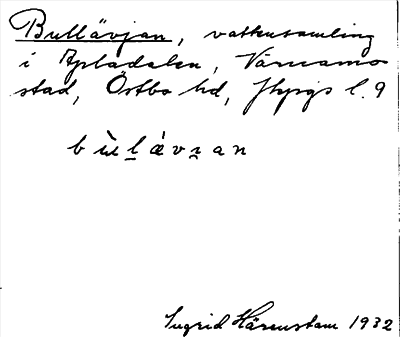 Bullävjan, vattensamling
i Apladalen, Värnamo
stad, Östbo hd, Jkpgs l. 9
bùl̠ǽvɪ̠an
Ingrid Härenstam 1932